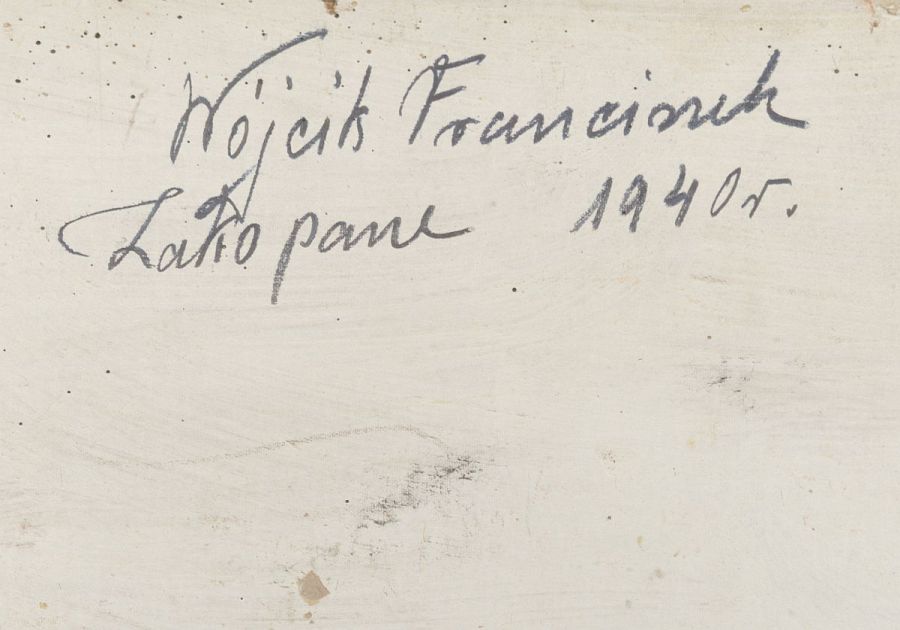 Wójcik Franciszek
Zakopane 1940 r.